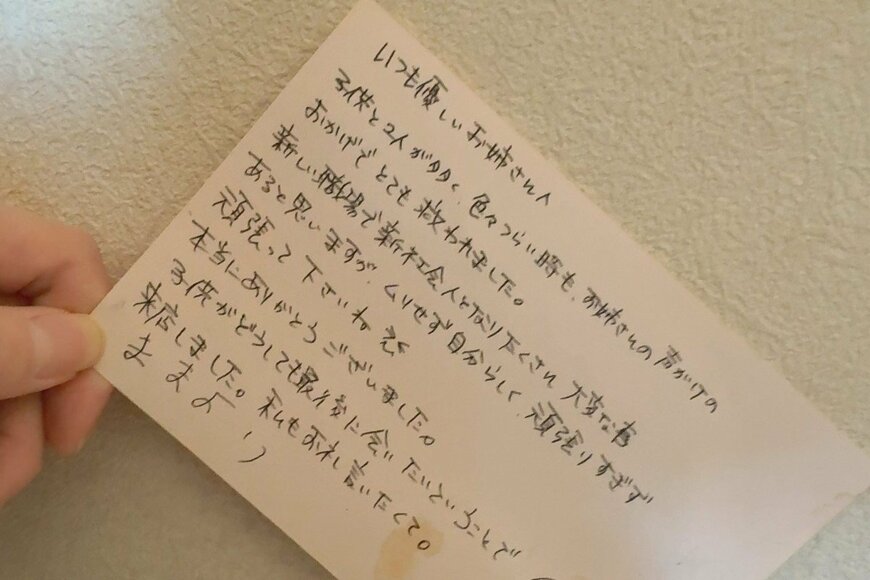 いつも優しいお姉さんへ
子供と2人が多く、色々つらい時も、お姉さんの声がけの
おかげでとても救われました。
新しい職場で新社会人となりたくさん大変な事
あると思いますが、ムリせず自分らしく、頑張りすぎず
頑張って下さいね
本当にありがとうございました。
子供がどうしても最後に会いたいということで
来店しました。私もお礼言いたくて。
ママより